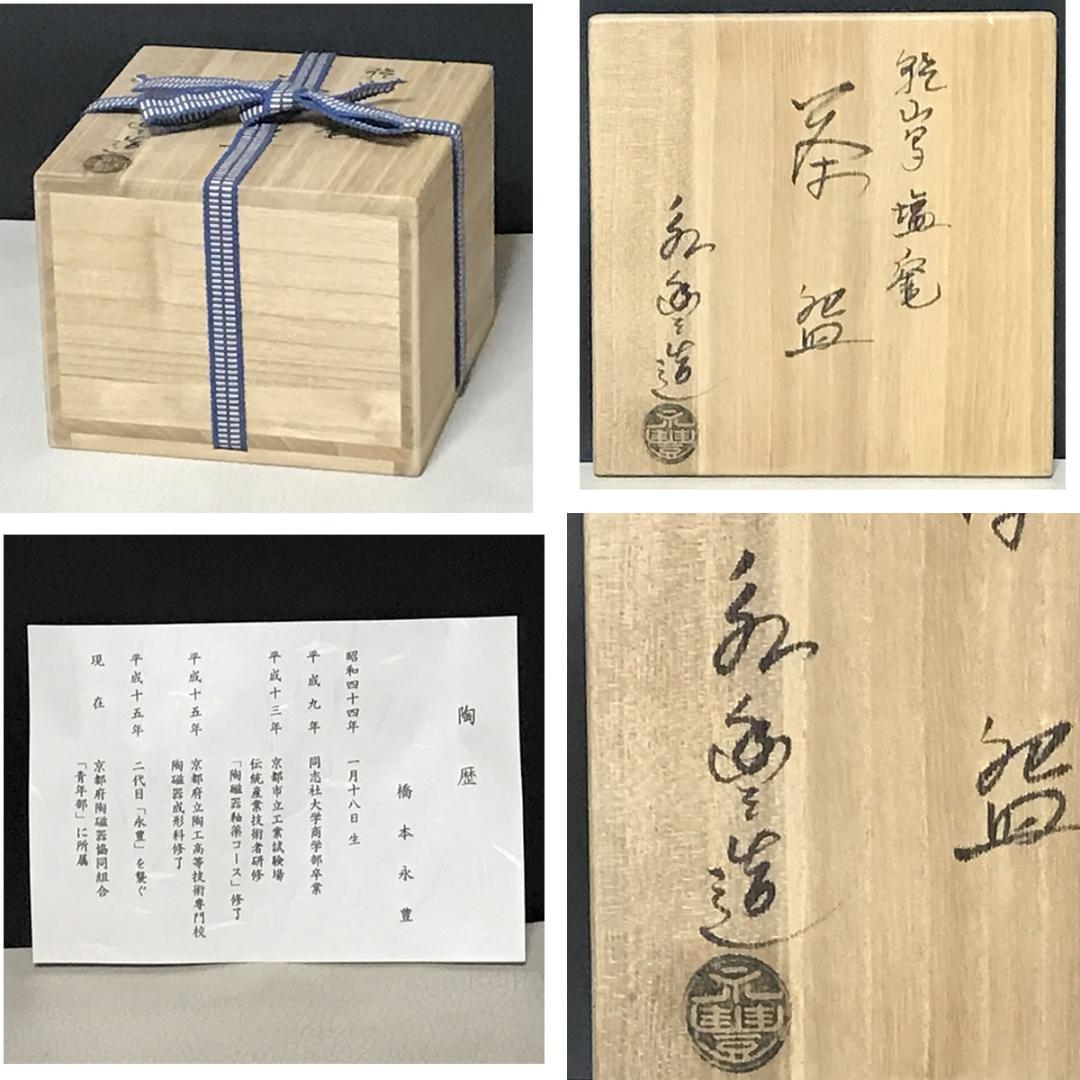 乾山写 塩竈
茶盌
永豊造
永豊
陶歴
橋本永豊
昭和四十四年 一月十八日 生
平成九年 同志社大学商学部卒業
平成十三年 京都市立工業試験場
伝統産業技術者研修
「陶磁器釉薬コース」修了
平成十五年 京都府立陶工高等技術専門校
陶磁器成形科修了
平成十五年 二代目「永豊」を襲ぐ
現在 京都府陶磁器協同組合
「青年部」に所属
盌
永豊造
永豊